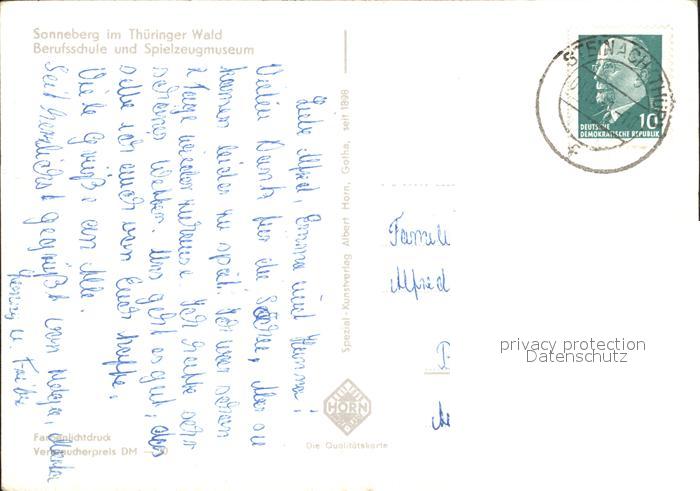 Sonneberg im Thüringer Wald
Berufsschule und Spielzeugmuseum
Liebe Alfred, Emma und Hanna!
Vielen Dank für die Aber du
kamen leider zu spät. Ich war schon
2 Tage wieder zuhause. Ich hatte sehr
schönes Wetter. Uns geht es gut, das
selbe ich auch von Euch hoffe.
Viele Grüße an Alle.
Seid herzlichst gegrüßt von
u.
Farbenlichtdruck
Verbraucherpreis DM
Spezial-Kunstverlag Albert Horn, Gotha, seit 1898
HORN
Die Qualitätskarte
STEINACH (THÜR)
10
DEUTSCHE
DEMOKRATISCHE REPUBLIK
Famil
Alfred
privacy protection
Datenschutz